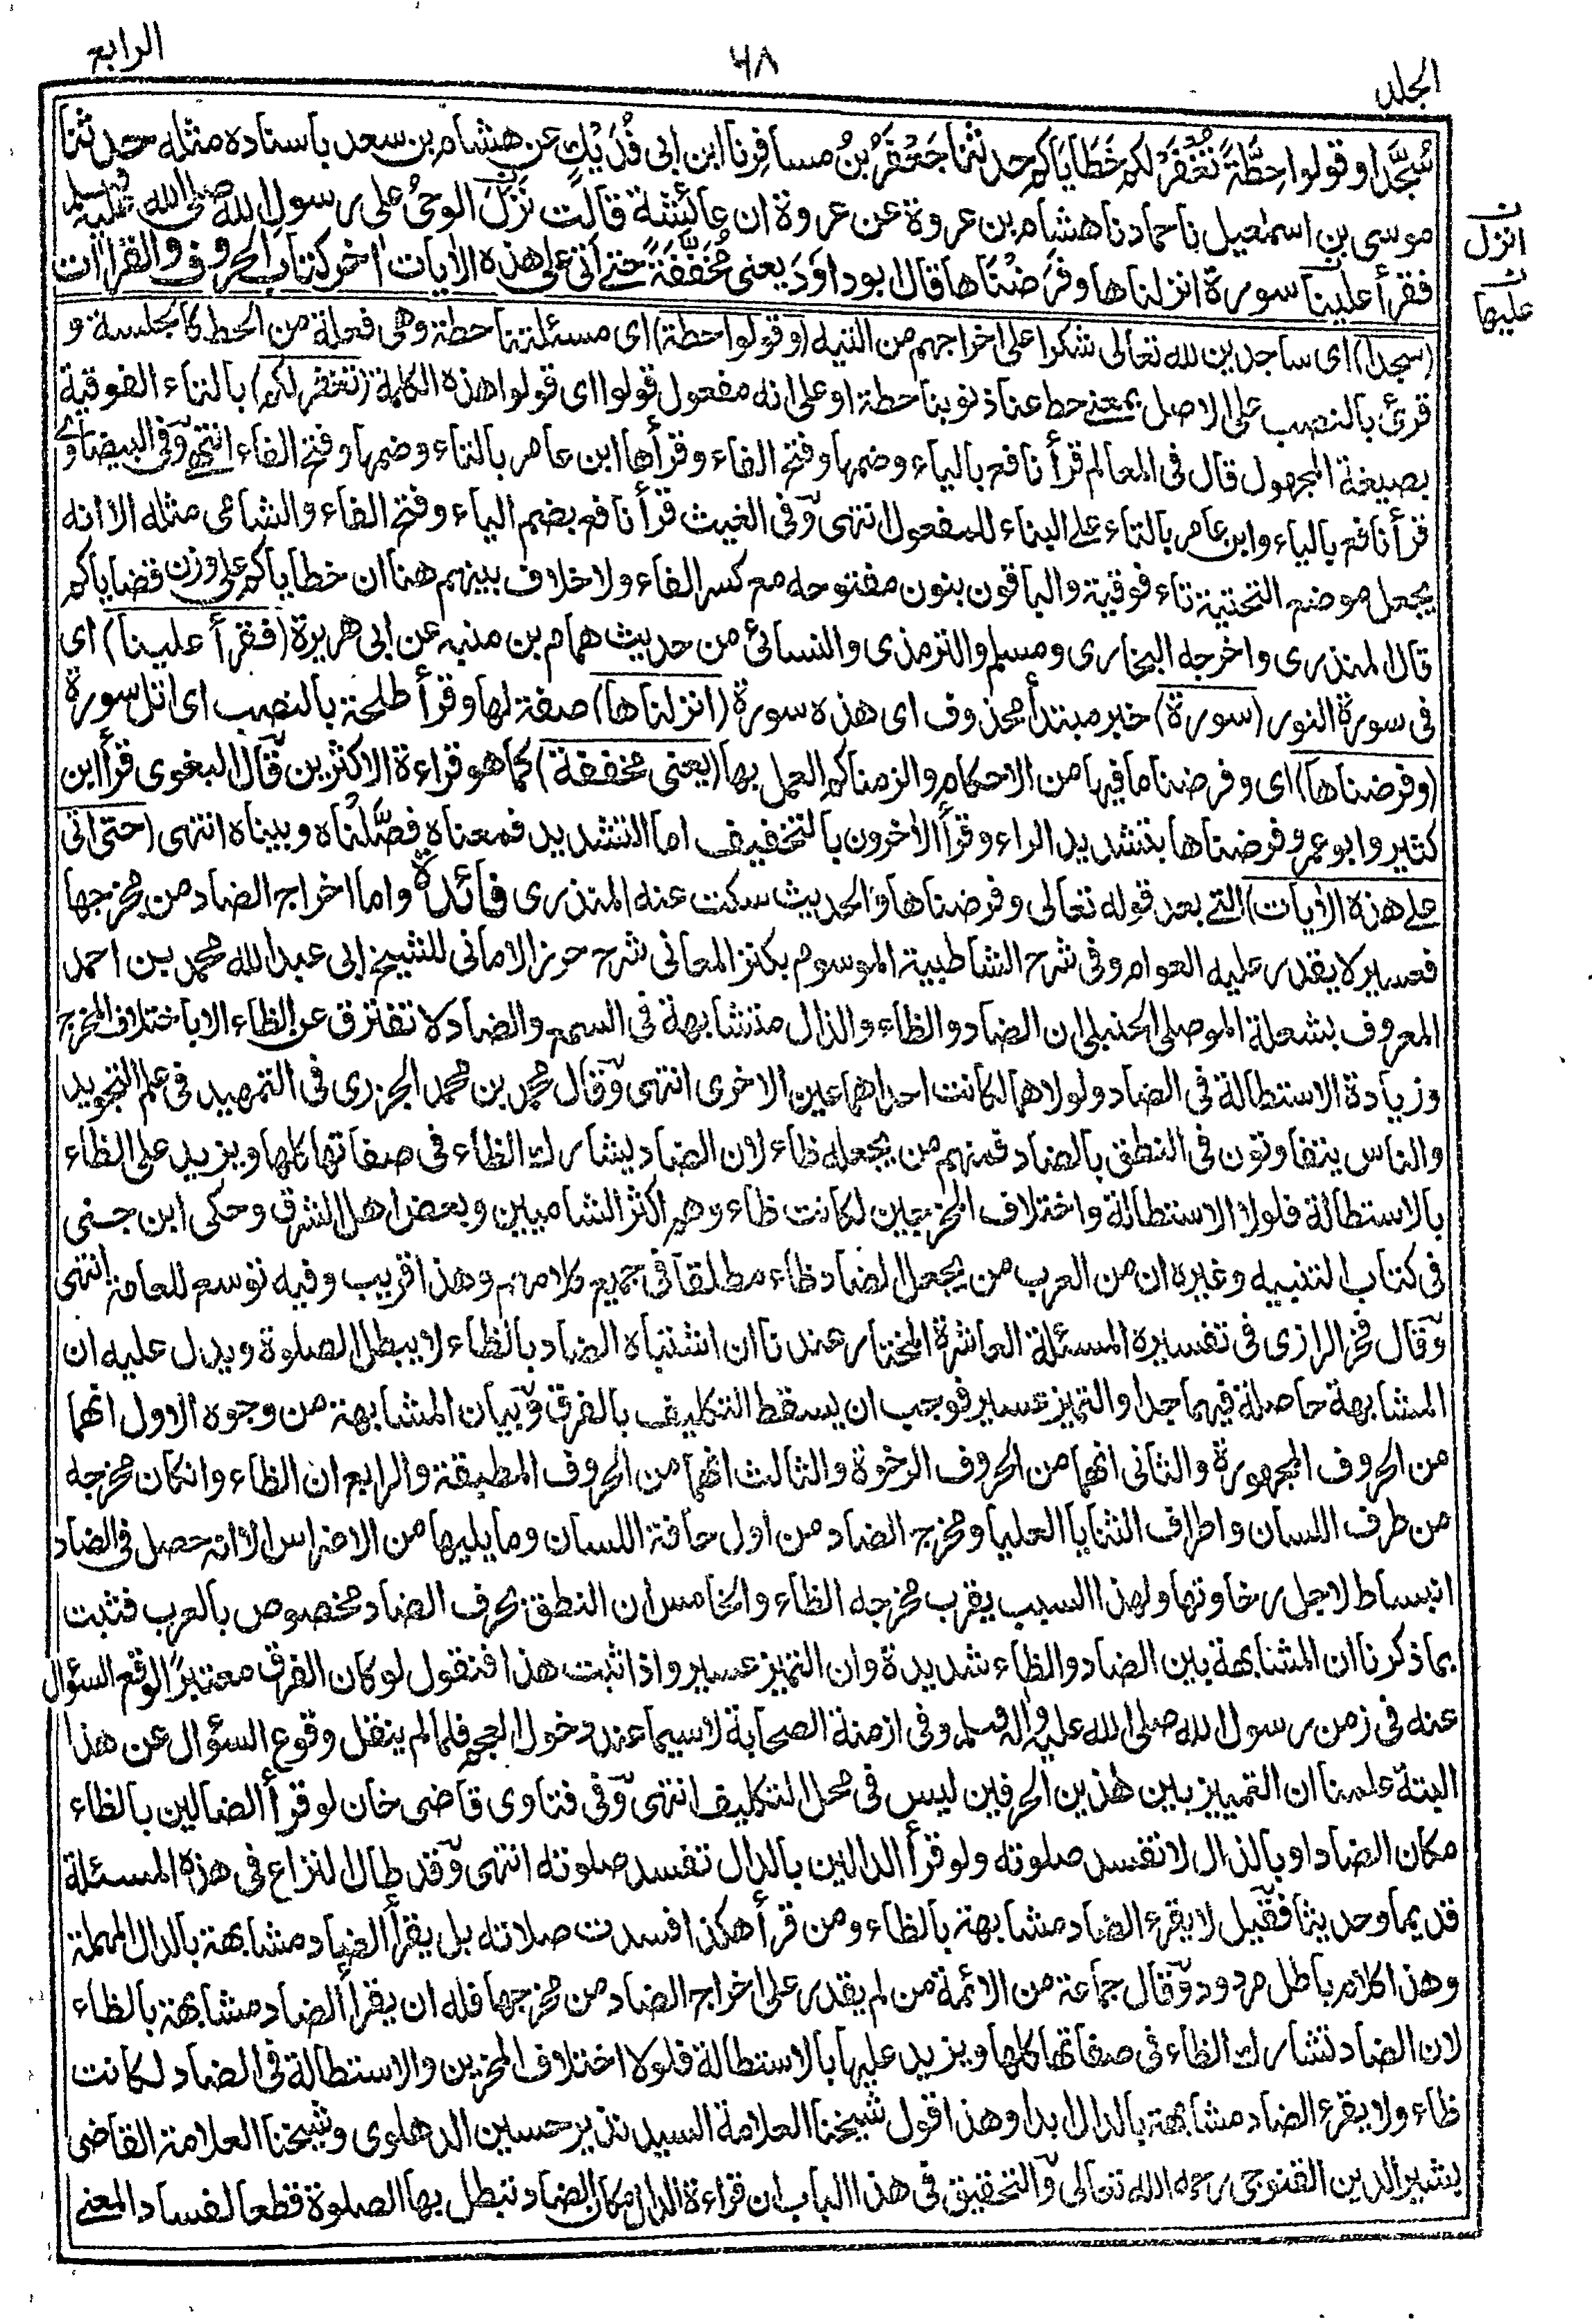 المجلد
٦٨
الرابع
سُجَّدًا وقولوا حِطَّةٌ تُغْفَرْ لكم خَطَاياكم حدثنا جَعْفَرُ بنُ مسافرنا ابن ابى فُدَيْكٍ عن هشام بن سعد باسناده مثله حدثنا
موسى بن اسمعيل نا حماد نا هشام بن عروة عن عروة ان عائشة قالت نَزَلَ الوحىُ على رسول الله صلى الله عليه وسلم
فقرأ علينا سورة انزلناها وفَرَضْنَاها قال ابوداوَدَ يعنى مُخَفَّفَةً حتى اتى على هذه الآيات اخر كتاب الحروف والقراآت
ن
انزل
ن
عليها
(سجدا) اى ساجدين لله تعالى شكرا على اخراجهم من التيه (وقولوا حطة) اى مسئلتنا حطة وهى فعلة من الحط كالجلسة و
قرئ بالنصب على الاصل بمعنى حط عنا ذنوبنا حطة او على انه مفعول قولوا اى قولوا هذه الكلمة (تغفر لكم) بالتاء الفوقية
بصيغة المجهول قال فى المعالم قرأ نافع بالياء وضمها وفتح الفاء وقرأها ابن عامر بالتاء وضمها وفتح الفاء انتهى وفى البيضاوى
قرأ نافع بالياء وابن عامر بالتاء على البناء للمفعول انتهى وفى الغيث قرأ نافع بضم الياء وفتح الفاء والشامى مثله الا انه
يجعل موضع التحتية تاء فوقية والباقون بنون مفتوحه مع كسر الفاء ولا خلاف بينهم هنا ان خطاياكم على وزن قضاياكم
قال المنذرى واخرجه البخارى ومسلم والترمذى والنسائى من حديث همام بن منبه عن ابى هريرة (فقرأ علينا) اى
فى سورة النور (سورة) خبر مبتدأ محذوف اى هذه سورة (انزلناها) صفة لها وقرأ طلحة بالنصب اى اتل سورة
(وفرضناها) اى وفرضنا ما فيها من الاحكام والزمناكم العمل بها (يعنى مخففة) كما هو قراءة الاكثرين قال البغوى قرأ ابن
كثير وابو عمرو وفرضناها بتشديد الراء وقرأ الآخرون بالتخفيف اما التشديد فمعناه فصّلناه وبيناه انتهى (حتى اتى
على هذه الآيات) التى بعد قوله تعالى وفرضناها والحديث سكت عنه المنذرى فائدة واما اخراج الضاد من مخرجها
فعسير لا يقدر عليه العوام وفى شرح الشاطبية الموسوم بكنز المعانى شرح حرز الامانى للشيخ ابى عبد الله محمد بن احمد
المعروف بشعلة الموصلى الحنبلى ان الضاد والظاء والذال متشابهة فى السمع والضاد لا تفترق عن الظاء الا باختلاف المخرج
وزيادة الاستطالة فى الضاد ولولاهما لكانت احداهما عين الاخرى انتهى وقال محمد بن محمد الجزرى فى التمهيد فى علم التجويد
والناس يتفاوتون فى النطق بالضاد فمنهم من يجعله ظاء لان الضاد يشارك الظاء فى صفاتها كلها ويزيد على الظاء
بالاستطالة فلولا الاستطالة واختلاف المخرجين لكانت ظاء وهم اكثر الشاميين وبعض اهل الشرق وحكى ابن جنى
فى كتاب التنبيه وغيره ان من العرب من يجعل الضاد ظاء مطلقا فى جميع كلامهم وهذا قريب وفيه توسع للعامة انتهى
وقال فخر الرازى فى تفسيره المسئلة العاشرة المختار عندنا ان اشتباه الضاد بالظاء لا يبطل الصلوة ويدل عليه ان
المشابهة حاصلة فيهما جدا والتميز عسير فوجب ان يسقط التكليف بالفرق وبيان المشابهة من وجوه الاول انهما
من الحروف المجهورة والثانى انهما من الحروف الرخوة والثالث انهما من الحروف المطبقة والرابع ان الظاء وانكان مخرجه
من طرف اللسان واطراف الثنايا العليا ومخرج الضاد من اول حافة اللسان وما يليها من الاضراس الا انه حصل فى الضاد
انبساط لاجل رخاوتها ولهذا السبب يقرب مخرجه الظاء والخامس ان النطق بحرف الضاد مخصوص بالعرب فثبت
بما ذكرنا ان المشابهة بين الضاد والظاء شديدة وان التميز عسير واذا ثبت هذا فنقول لو كان الفرق معتبرًا لوقع السؤال
عنه فى زمن رسول الله صلى الله عليه واله وسلم وفى ازمنة الصحابة لاسيما عند دخول العجم فلما لم ينقل وقوع السؤال عن هذا
البتة علمنا ان التمييز بين هذين الحرفين ليس فى محل التكليف انتهى وفى فتاوى قاضى خان لو قرأ الضالين بالظاء
مكان الضاد او بالذال لا تفسد صلوته ولو قرأ الدالين بالدال تفسد صلوته انتهى وقد طال النزاع فى هذه المسئلة
قديما وحديثا فقيل لا يقرء الضاد مشابهة بالظاء ومن قرأ هكذا فسدت صلاته بل يقرأ الضاد مشابهة بالدال المهملة
وهذا كلام باطل مردود وقال جماعة من الائمة من لم يقدر على اخراج الضاد من مخرجها فله ان يقرأ الضاد مشابهة بالظاء
لان الضاد تشارك الظاء فى صفاتها كلها ويزيد عليها بالاستطالة فلولا اختلاف المخرجين والاستطالة فى الضاد لكانت
ظاء ولا يقرء الضاد مشابهة بالدال ابدا وهذا قول شيخنا العلامة السيد نذير حسين الدهلوى وشيخنا العلامة القاضى
بشير الدين القنوجى رحمه الله تعالى والتحقيق فى هذا الباب ان قراءة الدال مكان الضاد تبطل بها الصلوة قطعا لفساد المعنى